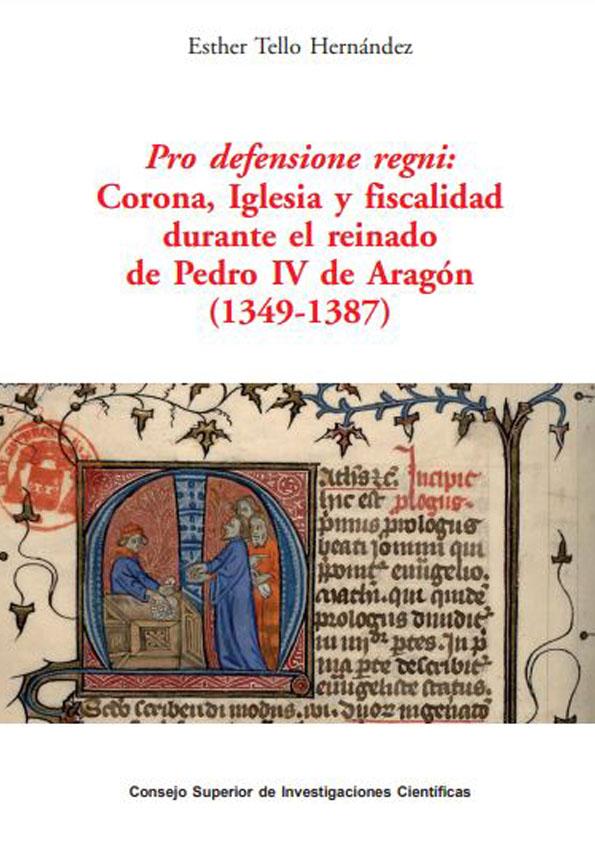 Esther Tello Hernández
Pro defensione regni:
Corona, Iglesia y fiscalidad
durante el reinado
de Pedro IV de Aragón
(1349-1387)
Incipit
hic est plogus.
pimus prologus
beati
mathi. qui quidē
prologus diuidit
ptes. In p
ma pte describit
status.
scribendi modus.
Consejo Superior de Investigaciones Científicas